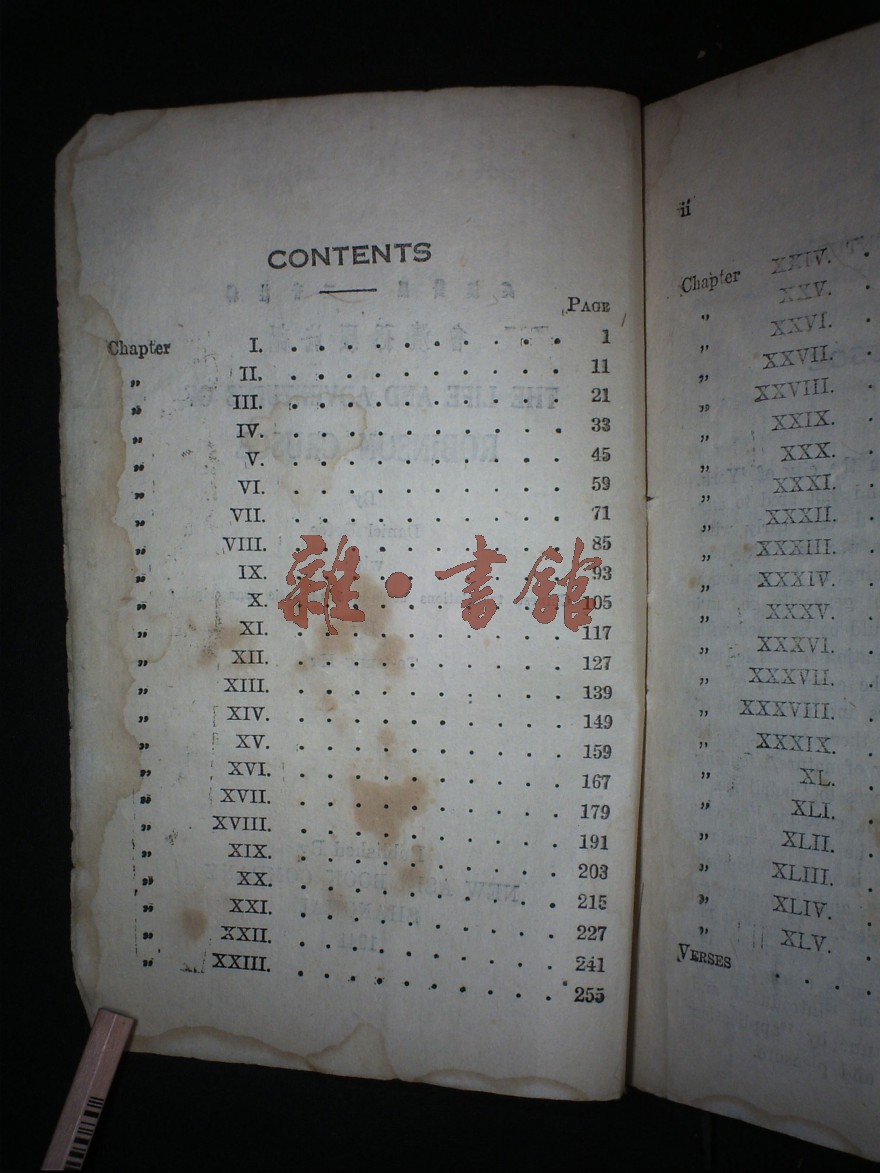 CONTENTS
PAGE
Chapter I. . . . . . . . . . . 1
„ II. . . . . . . . . . . 11
„ III. . . . . . . . . . . 21
„ IV. . . . . . . . . . . 33
„ V. . . . . . . . . . . 45
„ VI. . . . . . . . . . . 59
„ VII. . . . . . . . . . . 71
„ VIII. . . . . . . . . . . 85
„ IX. . . . . . . . . . . 93
„ X. . . . . . . . . . . 105
„ XI. . . . . . . . . . . 117
„ XII. . . . . . . . . . . 127
„ XIII. . . . . . . . . . . 139
„ XIV. . . . . . . . . . . 149
„ XV. . . . . . . . . . . 159
„ XVI. . . . . . . . . . . 167
„ XVII. . . . . . . . . . . 179
„ XVIII. . . . . . . . . . . 191
„ XIX. . . . . . . . . . . 203
„ XX. . . . . . . . . . . 215
„ XXI. . . . . . . . . . . 227
„ XXII. . . . . . . . . . . 241
„ XXIII. . . . . . . . . . . 255
雜·書館
ii
Chapter XXIV. .
„ XXV. .
„ XXVI. .
„ XXVII. .
„ XXVIII. .
„ XXIX. .
„ XXX. .
„ XXXI. .
„ XXXII. .
„ XXXIII. .
„ XXXIV. .
„ XXXV. .
„ XXXVI. .
„ XXXVII. .
„ XXXVIII. .
„ XXXIX. .
„ XL. .
„ XLI. .
„ XLII. .
„ XLIII. .
„ XLIV. .
„ XLV. .
VERSES . . .